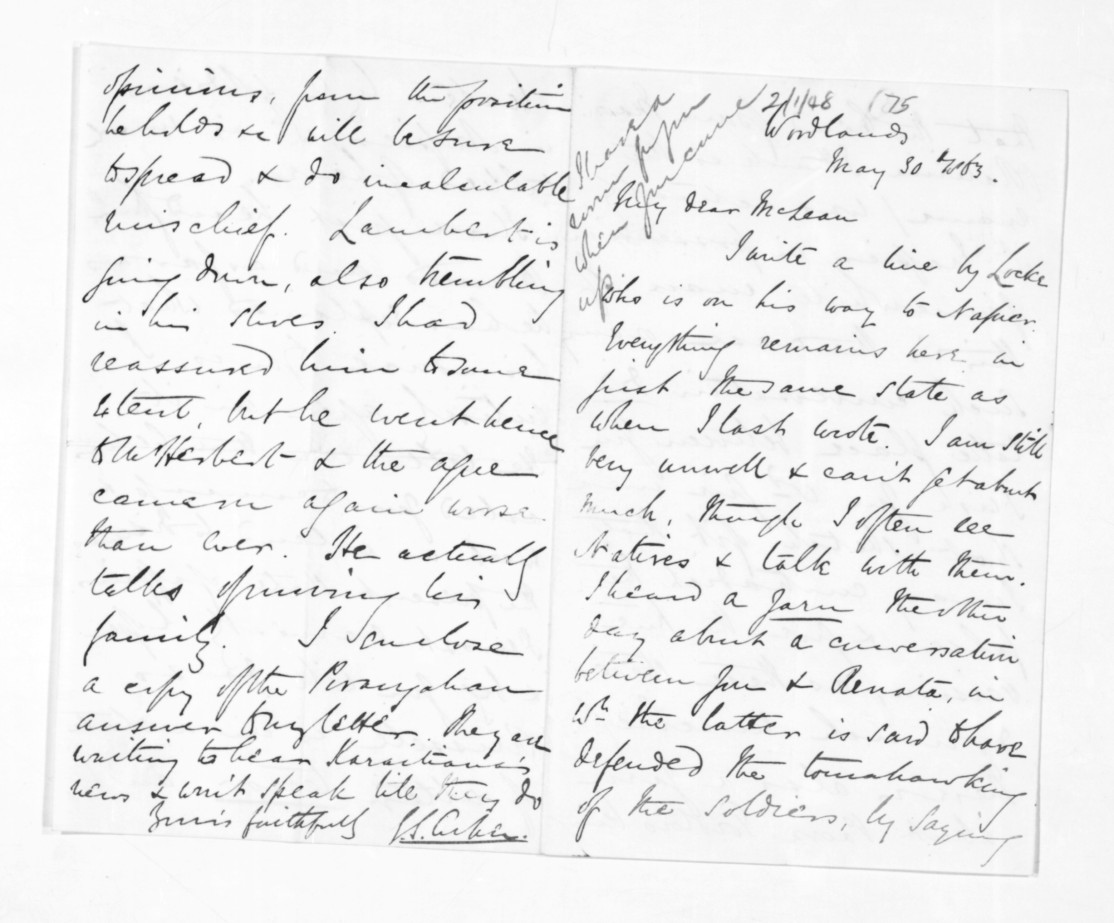 2/1/48 175
Woodlands
May 30th 1863.
My dear McLean
I write a line by Locke
who is on his way to Napier.
Everything remains here in
just the same state as
when I last wrote. I am still
very unwell & can't get about
much, though I often see
Natives & talk with them.
I heard a yarn the other
day about a conversation
between you & Renata, in
wh. the latter is said to have
defended the tomahawking
of the soldiers, by saying
opinions, from the position
he holds & will be sure
to spread & do incalculable
mischief. Lambert is
going down, also trembling
in his shoes. I had
reassured him to some
extent, but he went hence
to Herbert & the ague
came on again worse
than ever. He actually
talks of moving his
family. I enclose
a copy of the Porangahau
answer to my letter. They are
waiting to hear Karaitiana's
news & won't speak till they do
Yours faithfully
I have a
room for you
when you come
up